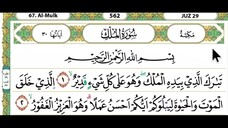 67. Al-Mulk 562 JUZ 29
مكية سورة الملك آياتها ٣٠
بِسْمِ اللَّهِ الرَّحْمَٰنِ الرَّحِيمِ
تَبَارَكَ الَّذِي بِيَدِهِ الْمُلْكُ وَهُوَ عَلَىٰ كُلِّ شَيْءٍ قَدِيرٌ ١ الَّذِي خَلَقَ
الْمَوْتَ وَالْحَيَاةَ لِيَبْلُوَكُمْ أَيُّكُمْ أَحْسَنُ عَمَلًا وَهُوَ الْعَزِيزُ الْغَفُورُ ٢